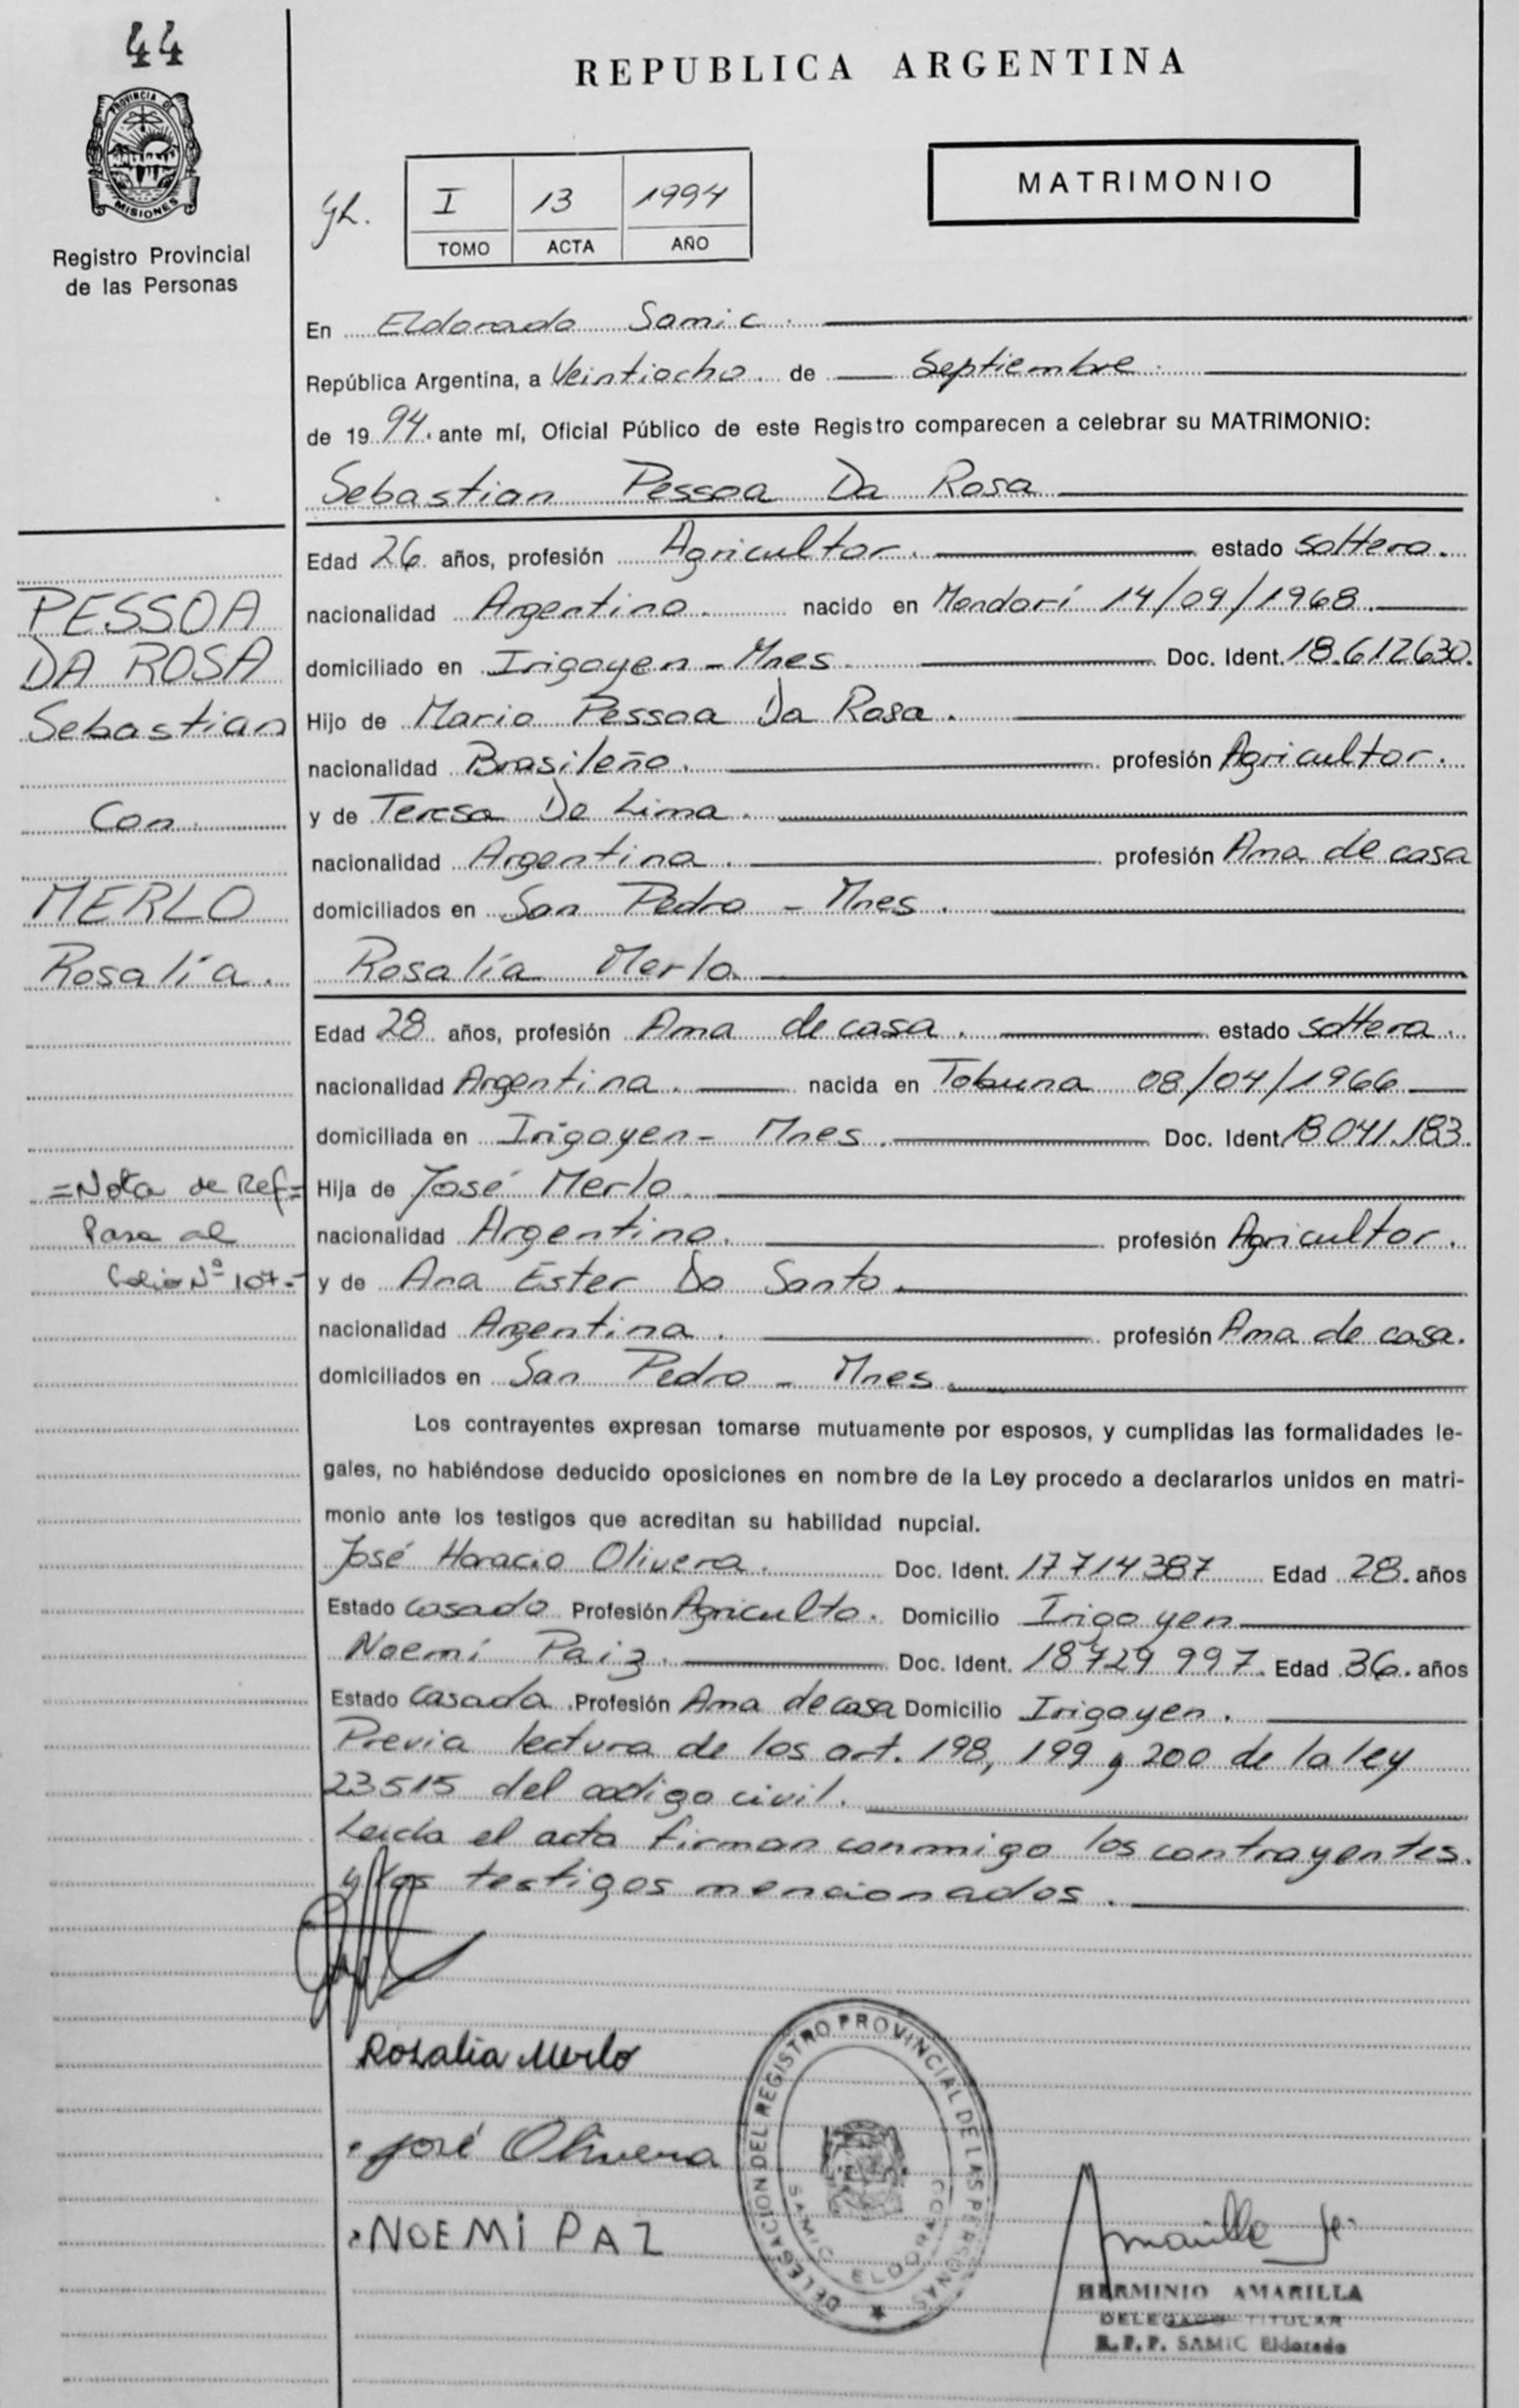 44
REPUBLICA ARGENTINA
PROVINCIA DE
MISIONES
Registro Provincial
de las Personas
I 13 1994
TOMO ACTA AÑO
MATRIMONIO
En Eldorado Samic.
República Argentina, a Veintiocho de Septiembre.
de 1994. ante mí, Oficial Público de este Registro comparecen a celebrar su MATRIMONIO:
Sebastian Pessoa Da Rosa
Edad 26 años, profesión Agricultor. estado soltero.
nacionalidad Argentino. nacido en Mondorí 14/09/1968
domiciliado en Irigoyen - Mnes. Doc. Ident. 18.612630.
Hijo de Mario Pessoa Da Rosa.
nacionalidad Brasileño. profesión Agricultor.
y de Teresa De Lima.
nacionalidad Argentina. profesión Ama de casa
domiciliados en San Pedro - Mnes.
Rosalía Merlo
Edad 28 años, profesión Ama de casa. estado soltera.
nacionalidad Argentina. nacida en Tobuna 08/04/1966
domiciliada en Irigoyen - Mnes. Doc. Ident. 18041.183.
Hija de José Merlo.
nacionalidad Argentino. profesión Agricultor.
y de Ana Ester Do Santo.
nacionalidad Argentina. profesión Ama de casa.
domiciliados en San Pedro - Mnes.
Los contrayentes expresan tomarse mutuamente por esposos, y cumplidas las formalidades le-
gales, no habiéndose deducido oposiciones en nombre de la Ley procedo a declararlos unidos en matri-
monio ante los testigos que acreditan su habilidad nupcial.
José Horacio Olivera. Doc. Ident. 17714387 Edad 28. años
Estado casado Profesión Agriculto. Domicilio Irigoyen
Noemí Paiz. Doc. Ident. 18729997. Edad 36. años
Estado Casada. Profesión Ama de casa Domicilio Irigoyen.
Previa lectura de los art. 198, 199 y 200 de la ley
23515 del codigo civil.
Leida el acta firman conmigo los contrayentes.
y los testigos mencionados.
PESSOA
DA ROSA
Sebastian
Con
MERLO
Rosalía.
=Nota de Ref=
Pasa al
folio Nº 107.-
Rosalia Merlo
José Olivera
NOEMI PAZ
DELEGACION DEL REGISTRO PROVINCIAL DE LAS PERSONAS
SAMIC ELDORADO
HERMINIO AMARILLA
DELEGADO TITULAR
R.P.P. SAMIC Eldorado